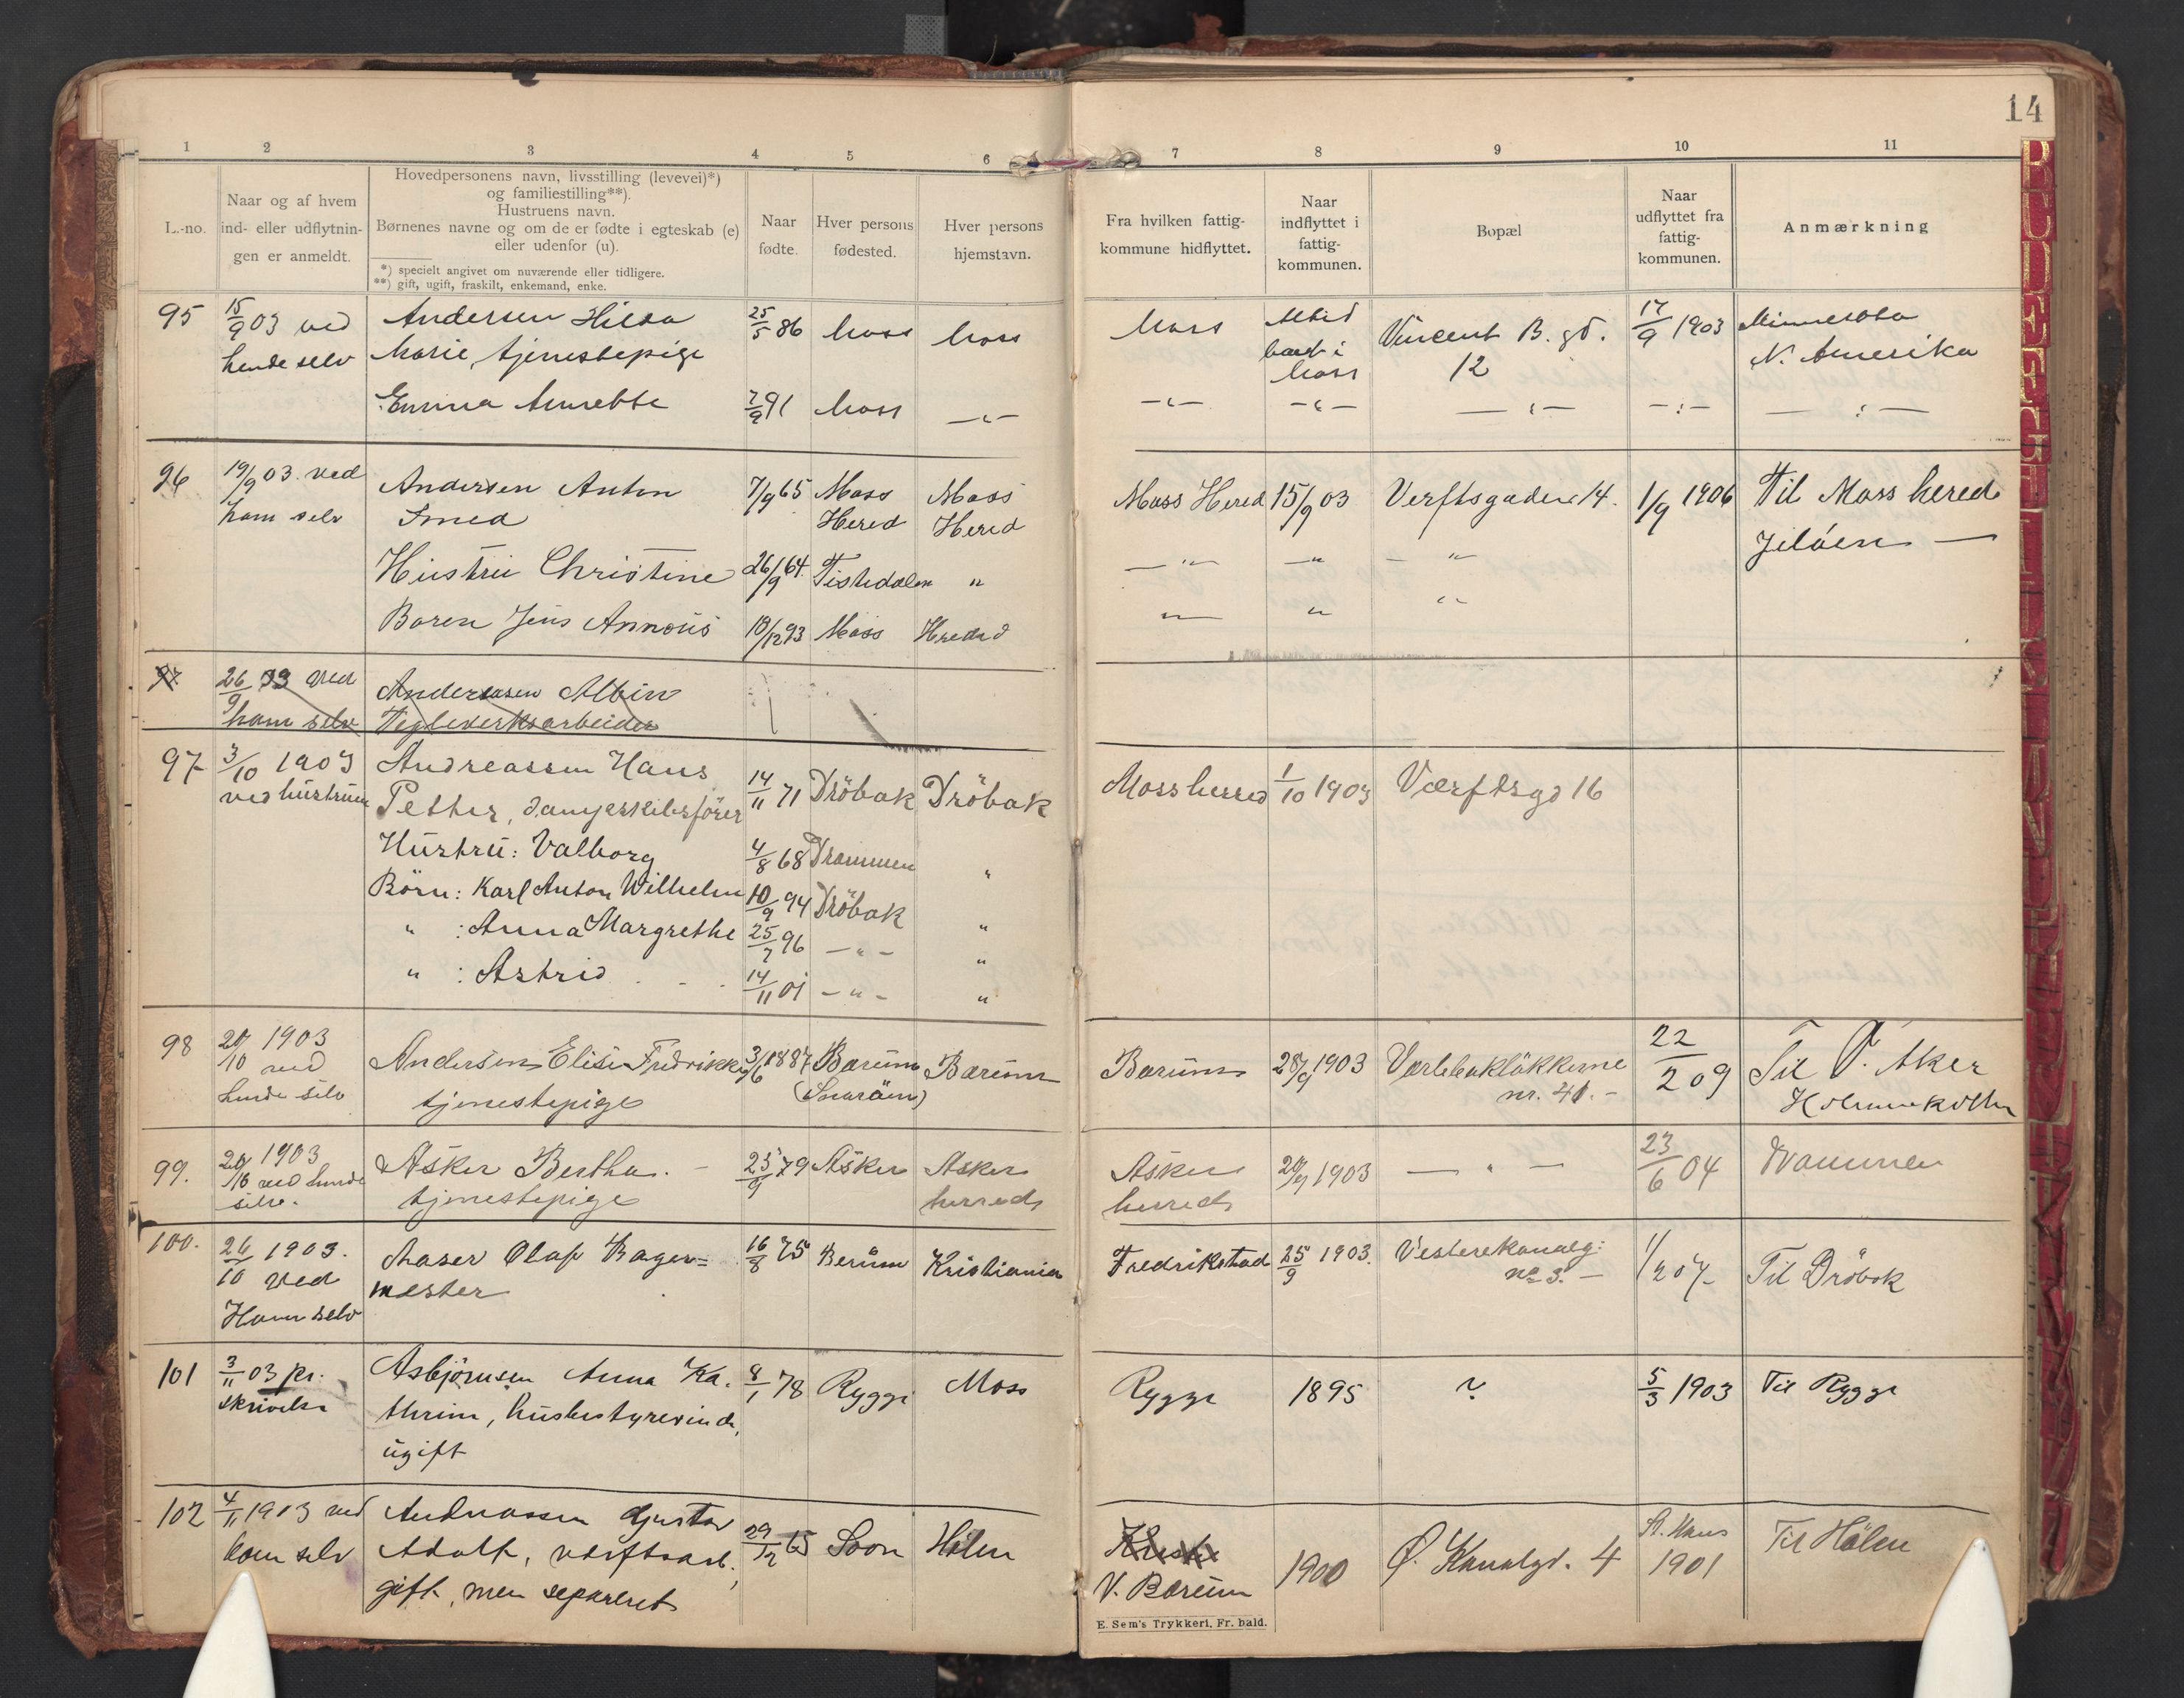 14
1 2 3 4 5 6 7 8 9 10 11
L.-no.
Naar og af hvem
ind- eller udflytnin-
gen er anmeldt.
Hovedpersonens navn, livsstilling (levevei)*)
og familiestilling**).
Hustruens navn.
Børnenes navne og om de er fødte i egteskab (e)
eller udenfor (u).
*) specielt angivet om nuværende eller tidligere.
**) gift, ugift, fraskilt, enkemand, enke.
Naar
fødte.
Hver persons
fødested.
Hver persons
hjemstavn.
Fra hvilken fattig-
kommune hidflyttet.
Naar
indflyttet i
fattig-
kommunen.
Bopæl
Naar
udflyttet fra
fattig-
kommunen.
Anmærkning
95 15/9 03 ved Andersen Hilda 25/5 86 Moss Moss Moss Altid Vincent B. gd. 17/9 1903 Minnesota
hende selv Marie, tjenestepige boet i 12 N. Amerika
Moss
Emma Annette 7/9 91 Moss —„— —„— —„— —„— —„— —„—
96 19/9 03. ved Andersen Anton 7/9 65 Moss Moss Moss Hered 15/9 03 Verftsgaden 14. 1/9 1906 Til Moss hered
ham selv Smed Hered Hered Jelöen —
Hustru Christine 26/9 64. Tistedalen „ —„— —„ - „
Baren Jens Annæus 18/12 93 Moss Hered —„— „ „
97. 26/9 03 ved Andreasen Albin
ham selv Teglverksarbeider
97 3/10 1903 Andreassen Hans 14/11 71 Dröbak Dröbak Mossherred 1/10 1903 Værftsgd 16
ved hustruen Petter, dampskibsförer
Hustru: Valborg 4/8 68 Drammen „
Börn: Karl Anton Wilhelm 10/9 94 Dröbak „
„ : Anna Margrethe 25/7 96 -„- „
„ : Astrid 14/11 01 -„- „
98 20/10 1903 Andersen Elise Fredrikke 3/6 1887 Bærum Bærum Bærum 28/9 1903 Værlebaklökkerne 22/2 09 Til V. Aker
ved tjenestepige (Snaröen) nr. 41. — Holmenkollen
hende selv
99. 20/10 1903 Asker Bertha. — 25/9 79 Asker Asker Asker 20/9 1903 — „ — 23/6 04 Drammen
ved hende tjenestepige herred herred
selv.
100. 26/10 1903. Aaser Olaf Bager= 16/8 75 Berum Kristiania Fredrikstad 25/9 1903. Vestre Kanalg: 1/2 07. Til Dröbak
ved mester No 3. —
Ham selv
101 3/11 03 pr. Asbjörnsen Anna Ka. 8/1 78 Rygge Moss Rygge 1895 ? 5/3 1903 Til Rygge
skrivelse thrine, husbestyrerinde,
ugift
102 4/11 1903 ved Andreassen Gustav 29/12 65 Soon Hölen 1900 Ø. Kanalgd. 4 St. Hans Til Hölen
ham selv Adolf, verftsarb., V. Bærum 1901
gift, men separeret
E. Sem's Trykkeri, Fr. hald.